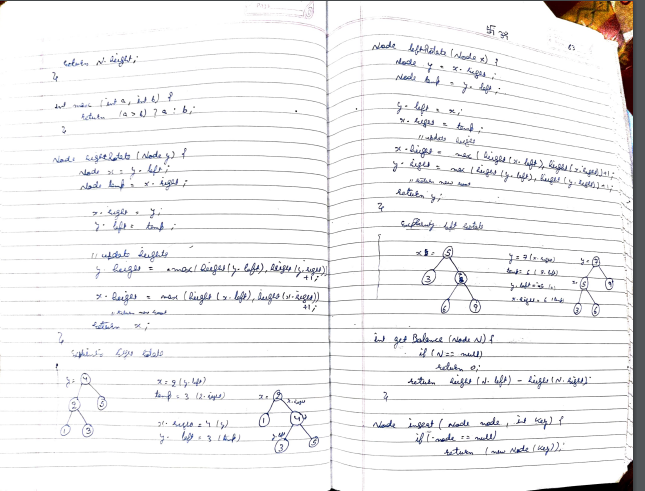 return N.height;
}
int max (int a, int b) {
return (a > b) ? a : b;
}
Node rightRotate (Node y) {
Node x = y.left;
Node temp = x.right;
x.right = y;
y.left = temp;
// update heights
y.height = max (height (y.left), height (y.right))
+1;
x.height = max (height (x.left), height (x.right))
+1;
// return new root
return x;
}
right rotate
y = 4
2 5
1 3
x = 2 (y.left)
temp = 3 (2.right)
x.right = 4 (y)
y. left = 3 (temp)
x = 2
1 4
3 5
Node leftRotate (Node x) {
Node y = x.right;
Node temp = y.left;
y.left = x;
x.right = temp;
// update height
x.height = max (height (x.left), height (x.right))+1;
y.height = max (height (y.left), height (y.right))+1;
// return new root
return y;
}
left rotate
5
3
6 9
y = 7 (x.right)
temp = 6
x.right = 6 (temp)
y = 7
5 9
3 6
int get Balance (Node N) {
if (N == null)
return 0;
return height (N.left) - height (N.right);
}
Node insert ( Node node, int key) {
if ( node == null)
return (new Node (key));